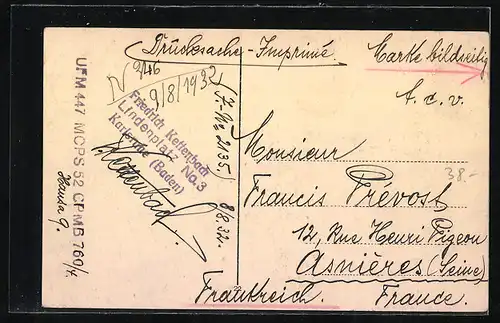 (Drucksache - Imprimé.
Marke bildseitig
t. c. v.
N
2/46
9/8/1932
Friedrich Kettenbach
Lindenplatz No. 3
Karlsruhe (Baden)
Kettenbach
8/8.32.
UFM 447 MCPS 52 CPMB 760/4
Hansa 9.
Monsieur
38.-
Francis Prévost
12, Rue Henri Pigeon
Asnières (Seine)
Frankreich.
France.